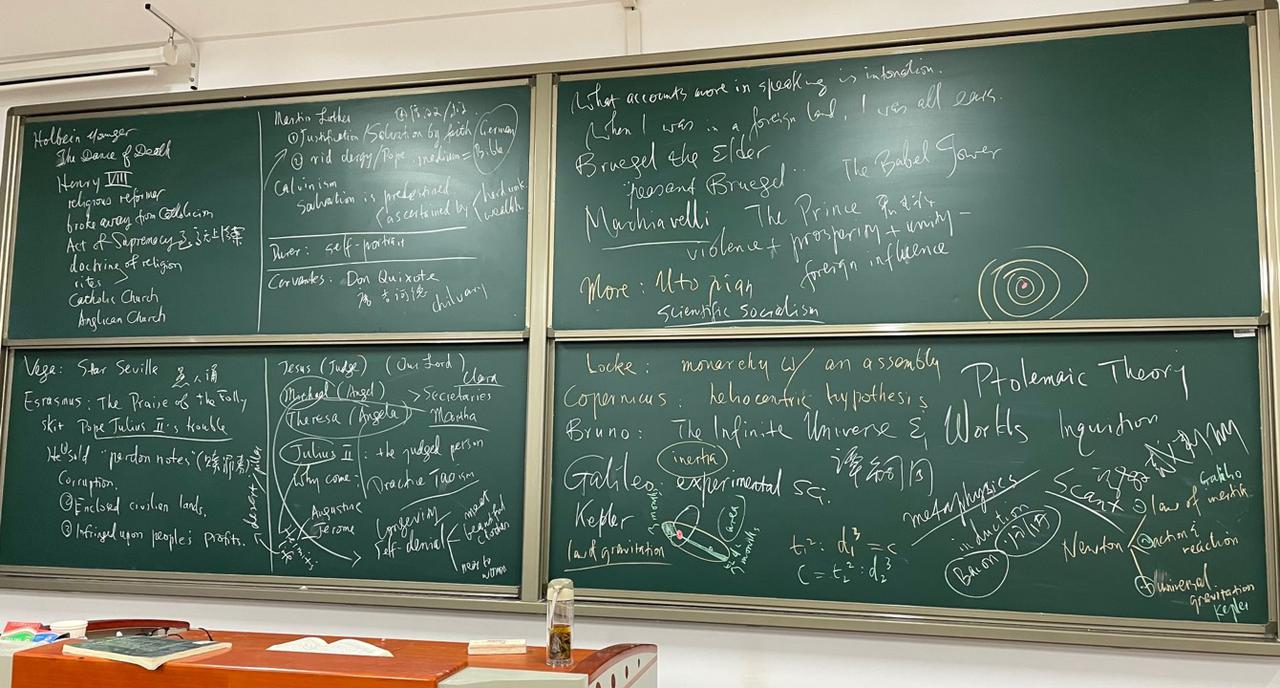 Holbein Younger
The Dance of Death
Henry VIII
religious reformer
broke away from Catholicism
Act of Supremacy 至尊法案
doctrine of religion
rites
Catholic Church
Anglican Church
Martin Luther
① Justification/Salvation by faith/German
② rid clergy/Pope medium = Bible
Calvinism
Salvation is predestined
ascertained by hard work
wealth
Durer: self-portrait
Cervantes: Don Quixote
chilvary
What accounts more in speaking is intonation.
When I was in a foreign land, I was all ears.
Bruegel the Elder
"peasant Bruegel"
The Babel Tower
Machiavelli The Prince
violence + prosperity + unity -
foreign influence
More: Utopian
Scientific Socialism
Vega: Star Seville
Esrasmus: The Praise of the Folly
skit Pope Julius II's trouble
He ① sold "pardon notes"
Corruption.
② Enclosed civilian lands.
③ Infringed upon people's profits.
Jesus (Judge) (Our Lord)
Michael (Angel)
Theresa (Angela)
Clara
Secretaries
Martha
Julius II: the judged person
Why come: Practice Taoism
Augustine
Jerome
Longevity
Self-denial
meat
beautiful
clothes
next to
women
Locke: monarchy w/ an assembly
Copernicus: heliocentric hypothesis
Ptolemaic Theory
Bruno: The Infinite Universe & Worlds Inquisition
inertia
Galileo: experimental sci.
Kepler
3 months
area
3 months
law of gravitation
t₁²: d₁³ = c
c = t₂²: d₂³
metaphysics
induction
归纳
Bacon
Newton
① law of inertia
Galileo
② action &
reaction
universal
gravitation
Kepler